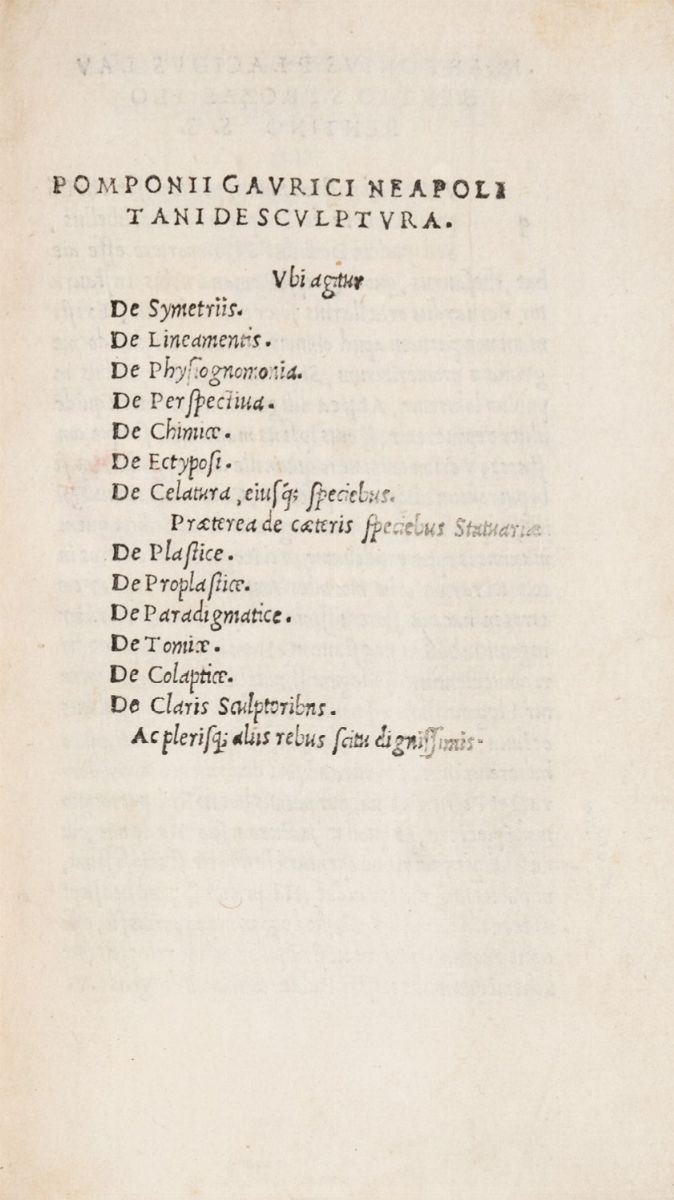 POMPONII GAVRICI NEAPOLI
TANI DE SCVLPTVRA.
Vbi agitur
De Symetriis.
De Lineamentis.
De Physiognomonia.
De Perspectiua.
De Chimicæ.
De Ectyposi.
De Celatura, eiusq; speciebus.
Præterea de cæteris speciebus Statuariæ
De Plastice.
De Proplasticæ.
De Paradigmatice.
De Tomicæ.
De Colapticæ.
De Claris Sculptoribns.
Ac plerisq; aliis rebus scitu dignissimis.